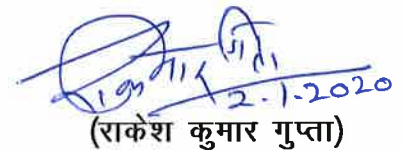 2.1.2020
(राकेश कुमार गुप्ता)